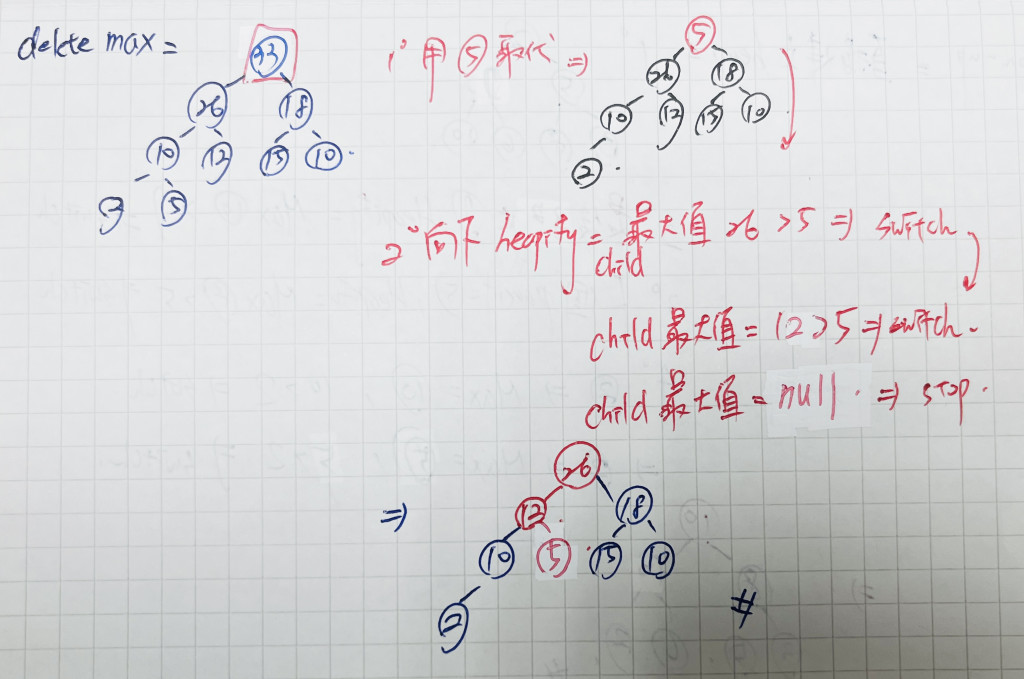 delete max =
33
26 18
10 12 15 10
2 5
1° 用 ⑤ 取代 ⇒
5
26 18
10 12 15 10
2
2° 向下 heapify = child 最大值 26 > 5 ⇒ switch
child 最大值 = 12 > 5 ⇒ switch.
child 最大值 = null. ⇒ stop.
⇒
26
12 18
10 5 15 10
2
#